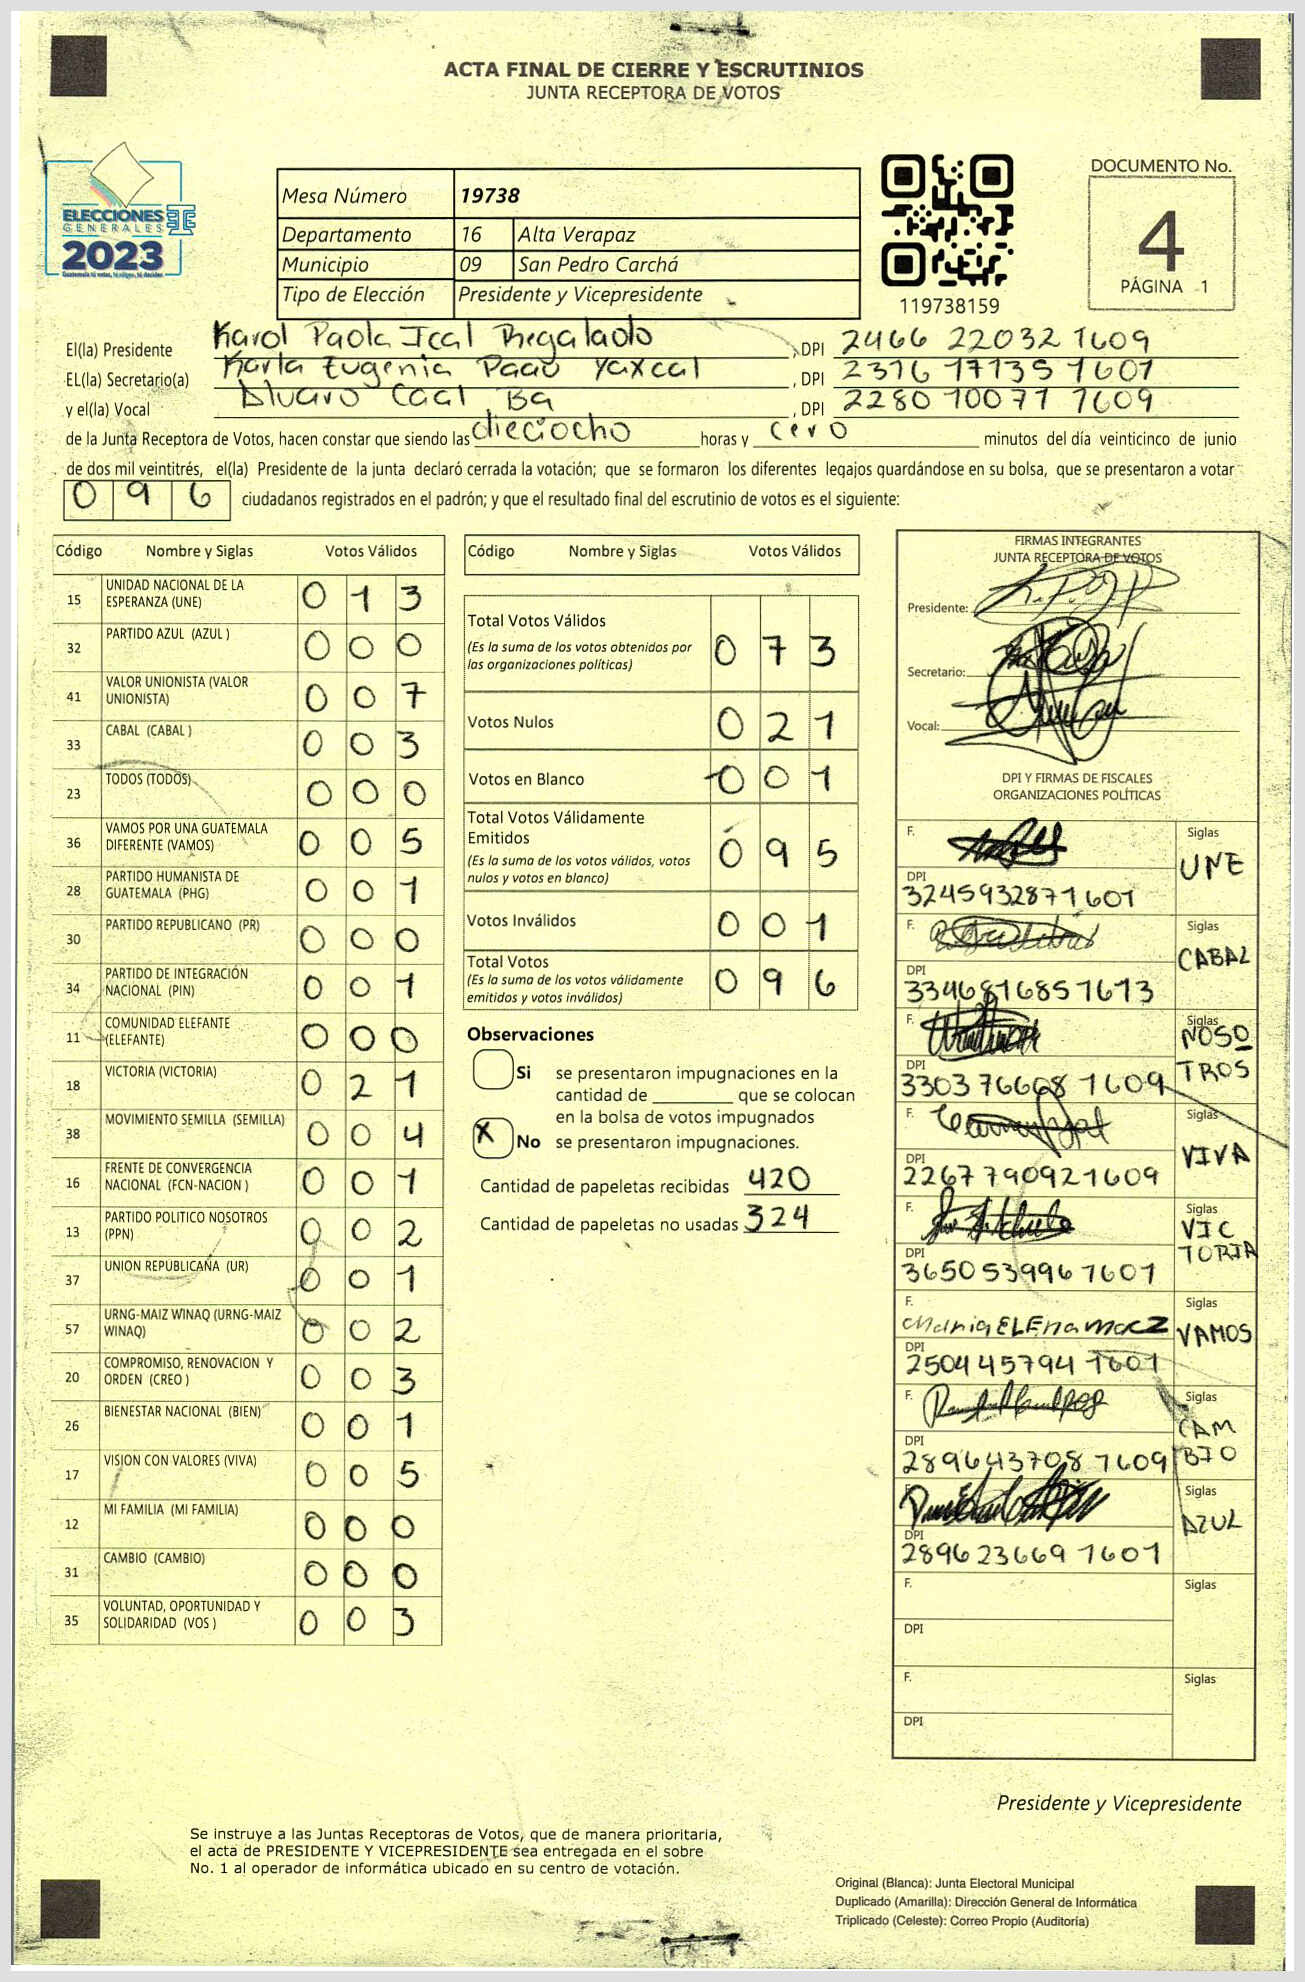 ACTA FINAL DE CIERRE Y ESCRUTINIOS
JUNTA RECEPTORA DE VOTOS
ELECCIONES
GENERALES
2023
Mesa Número 19738
Departamento 16 Alta Verapaz
Municipio 09 San Pedro Carchá
Tipo de Elección Presidente y Vicepresidente
119738159
DOCUMENTO No.
4
PÁGINA 1
El(la) Presidente Karol Paola Ical Regalado , DPI 2466 22032 1609
EL(la) Secretario(a) Karla Eugenia Paau Yaxcal , DPI 2316 17135 1601
y el(la) Vocal Alvaro Caal Ba , DPI 2280 10077 1609
de la Junta Receptora de Votos, hacen constar que siendo las dieciocho horas y cero minutos del día veinticinco de junio
de dos mil veintitrés, el(la) Presidente de la junta declaró cerrada la votación; que se formaron los diferentes legajos guardándose en su bolsa, que se presentaron a votar
0 9 6 ciudadanos registrados en el padrón; y que el resultado final del escrutinio de votos es el siguiente:
Código Nombre y Siglas Votos Válidos
15 UNIDAD NACIONAL DE LA ESPERANZA (UNE) 0 1 3
32 PARTIDO AZUL (AZUL ) 0 0 0
41 VALOR UNIONISTA (VALOR UNIONISTA) 0 0 7
33 CABAL (CABAL ) 0 0 3
23 TODOS (TODOS) 0 0 0
36 VAMOS POR UNA GUATEMALA DIFERENTE (VAMOS) 0 0 5
28 PARTIDO HUMANISTA DE GUATEMALA (PHG) 0 0 1
30 PARTIDO REPUBLICANO (PR) 0 0 0
34 PARTIDO DE INTEGRACIÓN NACIONAL (PIN) 0 0 1
11 COMUNIDAD ELEFANTE (ELEFANTE) 0 0 0
18 VICTORIA (VICTORIA) 0 2 1
38 MOVIMIENTO SEMILLA (SEMILLA) 0 0 4
16 FRENTE DE CONVERGENCIA NACIONAL (FCN-NACION ) 0 0 1
13 PARTIDO POLITICO NOSOTROS (PPN) 0 0 2
37 UNION REPUBLICANA (UR) 0 0 1
57 URNG-MAIZ WINAQ (URNG-MAIZ WINAQ) 0 0 2
20 COMPROMISO, RENOVACION Y ORDEN (CREO ) 0 0 3
26 BIENESTAR NACIONAL (BIEN) 0 0 1
17 VISION CON VALORES (VIVA) 0 0 5
12 MI FAMILIA (MI FAMILIA) 0 0 0
31 CAMBIO (CAMBIO) 0 0 0
35 VOLUNTAD, OPORTUNIDAD Y SOLIDARIDAD (VOS ) 0 0 3
Código Nombre y Siglas Votos Válidos
Total Votos Válidos 0 7 3
(Es la suma de los votos obtenidos por
las organizaciones políticas)
Votos Nulos 0 2 1
Votos en Blanco 0 0 1
Total Votos Válidamente
Emitidos 0 9 5
(Es la suma de los votos válidos, votos
nulos y votos en blanco)
Votos Inválidos 0 0 1
Total Votos 0 9 6
(Es la suma de los votos válidamente
emitidos y votos inválidos)
Observaciones
Si se presentaron impugnaciones en la
cantidad de ________ que se colocan
en la bolsa de votos impugnados
X No se presentaron impugnaciones.
Cantidad de papeletas recibidas 420
Cantidad de papeletas no usadas 324
FIRMAS INTEGRANTES
JUNTA RECEPTORA DE VOTOS
Presidente:
Secretario:
Vocal:
DPI Y FIRMAS DE FISCALES
ORGANIZACIONES POLÍTICAS
F. Siglas
UNE
DPI
3245932871601
F. Siglas
CABAL
DPI
3346816851613
F. Siglas
NOSO
TROS
DPI
3303766681609
F. Siglas
VIVA
DPI
2267790921609
F. Siglas
VIC
TORIA
DPI
3650539961601
F. Maria ELEna Macz Siglas
VAMOS
DPI
2504457941601
F. Siglas
CAM
BIO
DPI
2896437081609
F. Siglas
AZUL
DPI
2896236691601
F. Siglas
DPI
F. Siglas
DPI
Presidente y Vicepresidente
Se instruye a las Juntas Receptoras de Votos, que de manera prioritaria,
el acta de PRESIDENTE Y VICEPRESIDENTE sea entregada en el sobre
No. 1 al operador de informática ubicado en su centro de votación.
Original (Blanca): Junta Electoral Municipal
Duplicado (Amarilla): Dirección General de Informática
Triplicado (Celeste): Correo Propio (Auditoría)